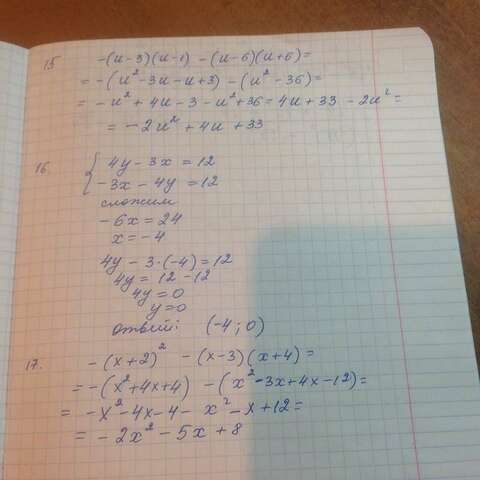 15 -(u-3)(u-1) - (u-6)(u+6)=
= -(u²-3u-u+3) - (u²-36)=
= -u²+4u-3-u²+36=4u+33-2u²=
= -2u²+4u+33
16. { 4y-3x=12
-3x-4y=12
сложим
-6x=24
x=-4
4y-3·(-4)=12
4y=12-12
4y=0
y=0
ответ: (-4;0)
17. -(x+2)² -(x-3)(x+4)=
=-(x²+4x+4) -(x²-3x+4x-12)=
= -x²-4x-4-x²-x+12=
= -2x²-5x+8